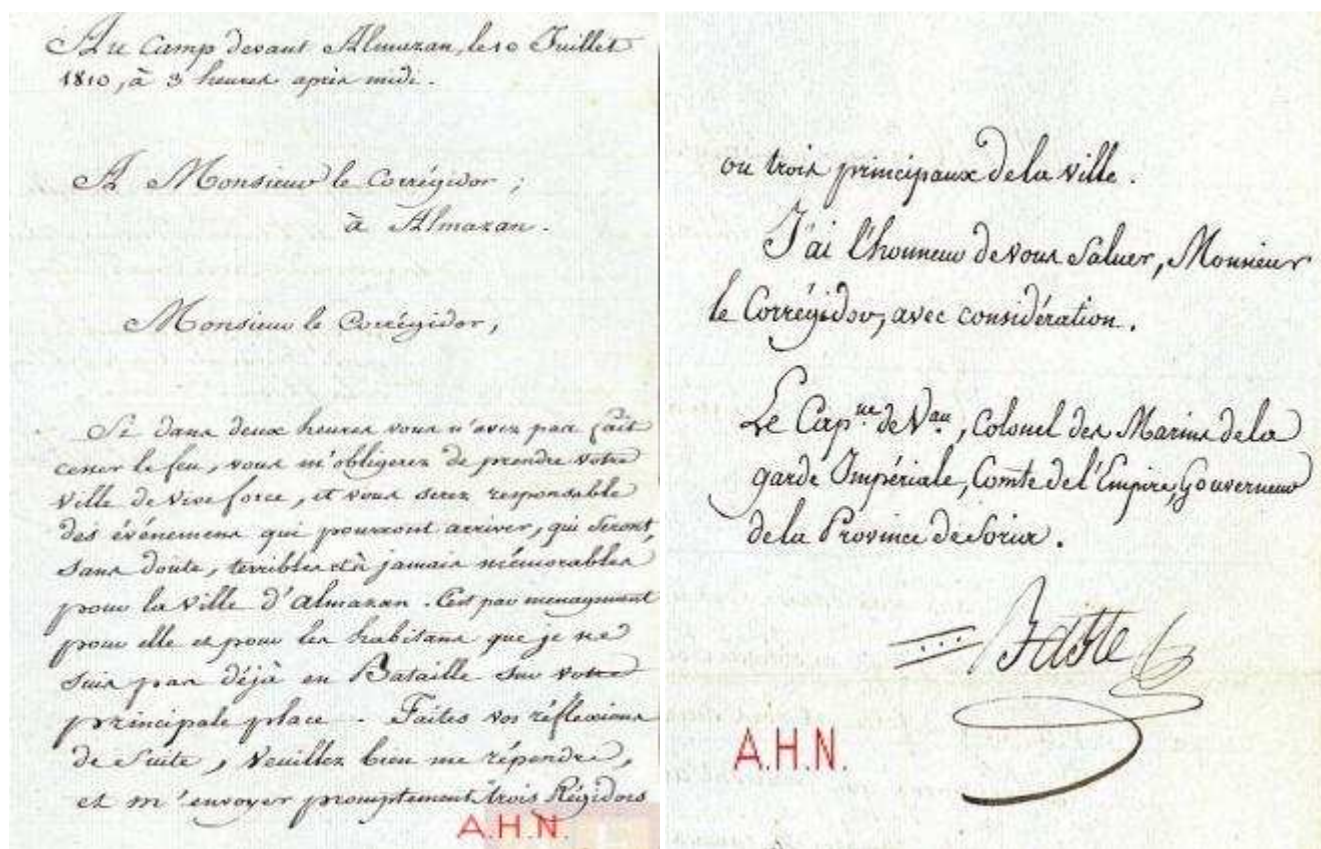 Au Camp devant Almazan, le 10 Juillet
1810, à 3 heures après midi.
A Monsieur le Corrégidor ;
à Almazan.
Monsieur le Corrégidor,
Si dans deux heures vous n'avez pas fait
cesser le feu, vous m'obligerez de prendre votre
ville de vive force, et vous serez responsable
des événemens qui pourront arriver, qui seront,
sans doute, terribles et à jamais mémorables
pour la ville d'Almazan. C'est par menagment
pour elle et pour les habitans que je ne
suis pas déjà en Bataille sur votre
principale place. Faites vos réflexions
de suite, Veuillez bien me répondre,
et m'envoyer promptement trois Régidors
A.H.N.
ou trois principaux de la ville.
J'ai l'honneur de vous saluer, Monsieur
le Corrégidor, avec considération.
Le Cap.ne de V.au, Colonel des Marins de la
garde Impériale, Comte de l'Empire, Gouverneur
de la Province de Soria.
Baste
A.H.N.